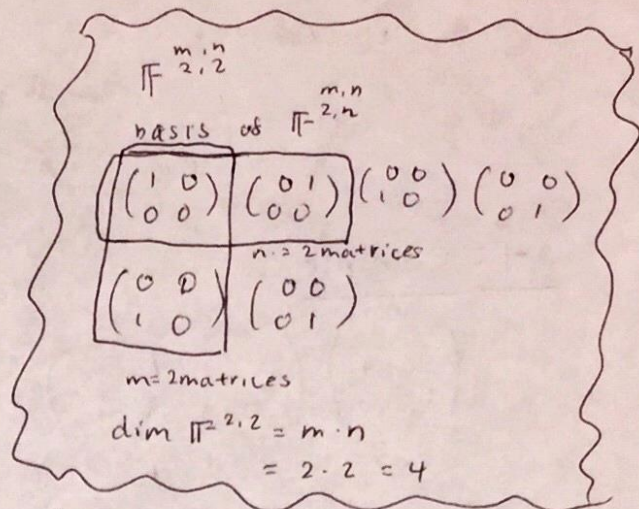 m,n
𝔽 2,2
m,n
basis of 𝔽 2,n
(1 0) (0 1) (0 0) (0 0)
(0 0) (0 0) (1 0) (0 1)
n = 2 matrices
(0 0) (0 0)
(1 0) (0 1)
m = 2 matrices
dim 𝔽 2,2 = m · n
= 2 · 2 = 4